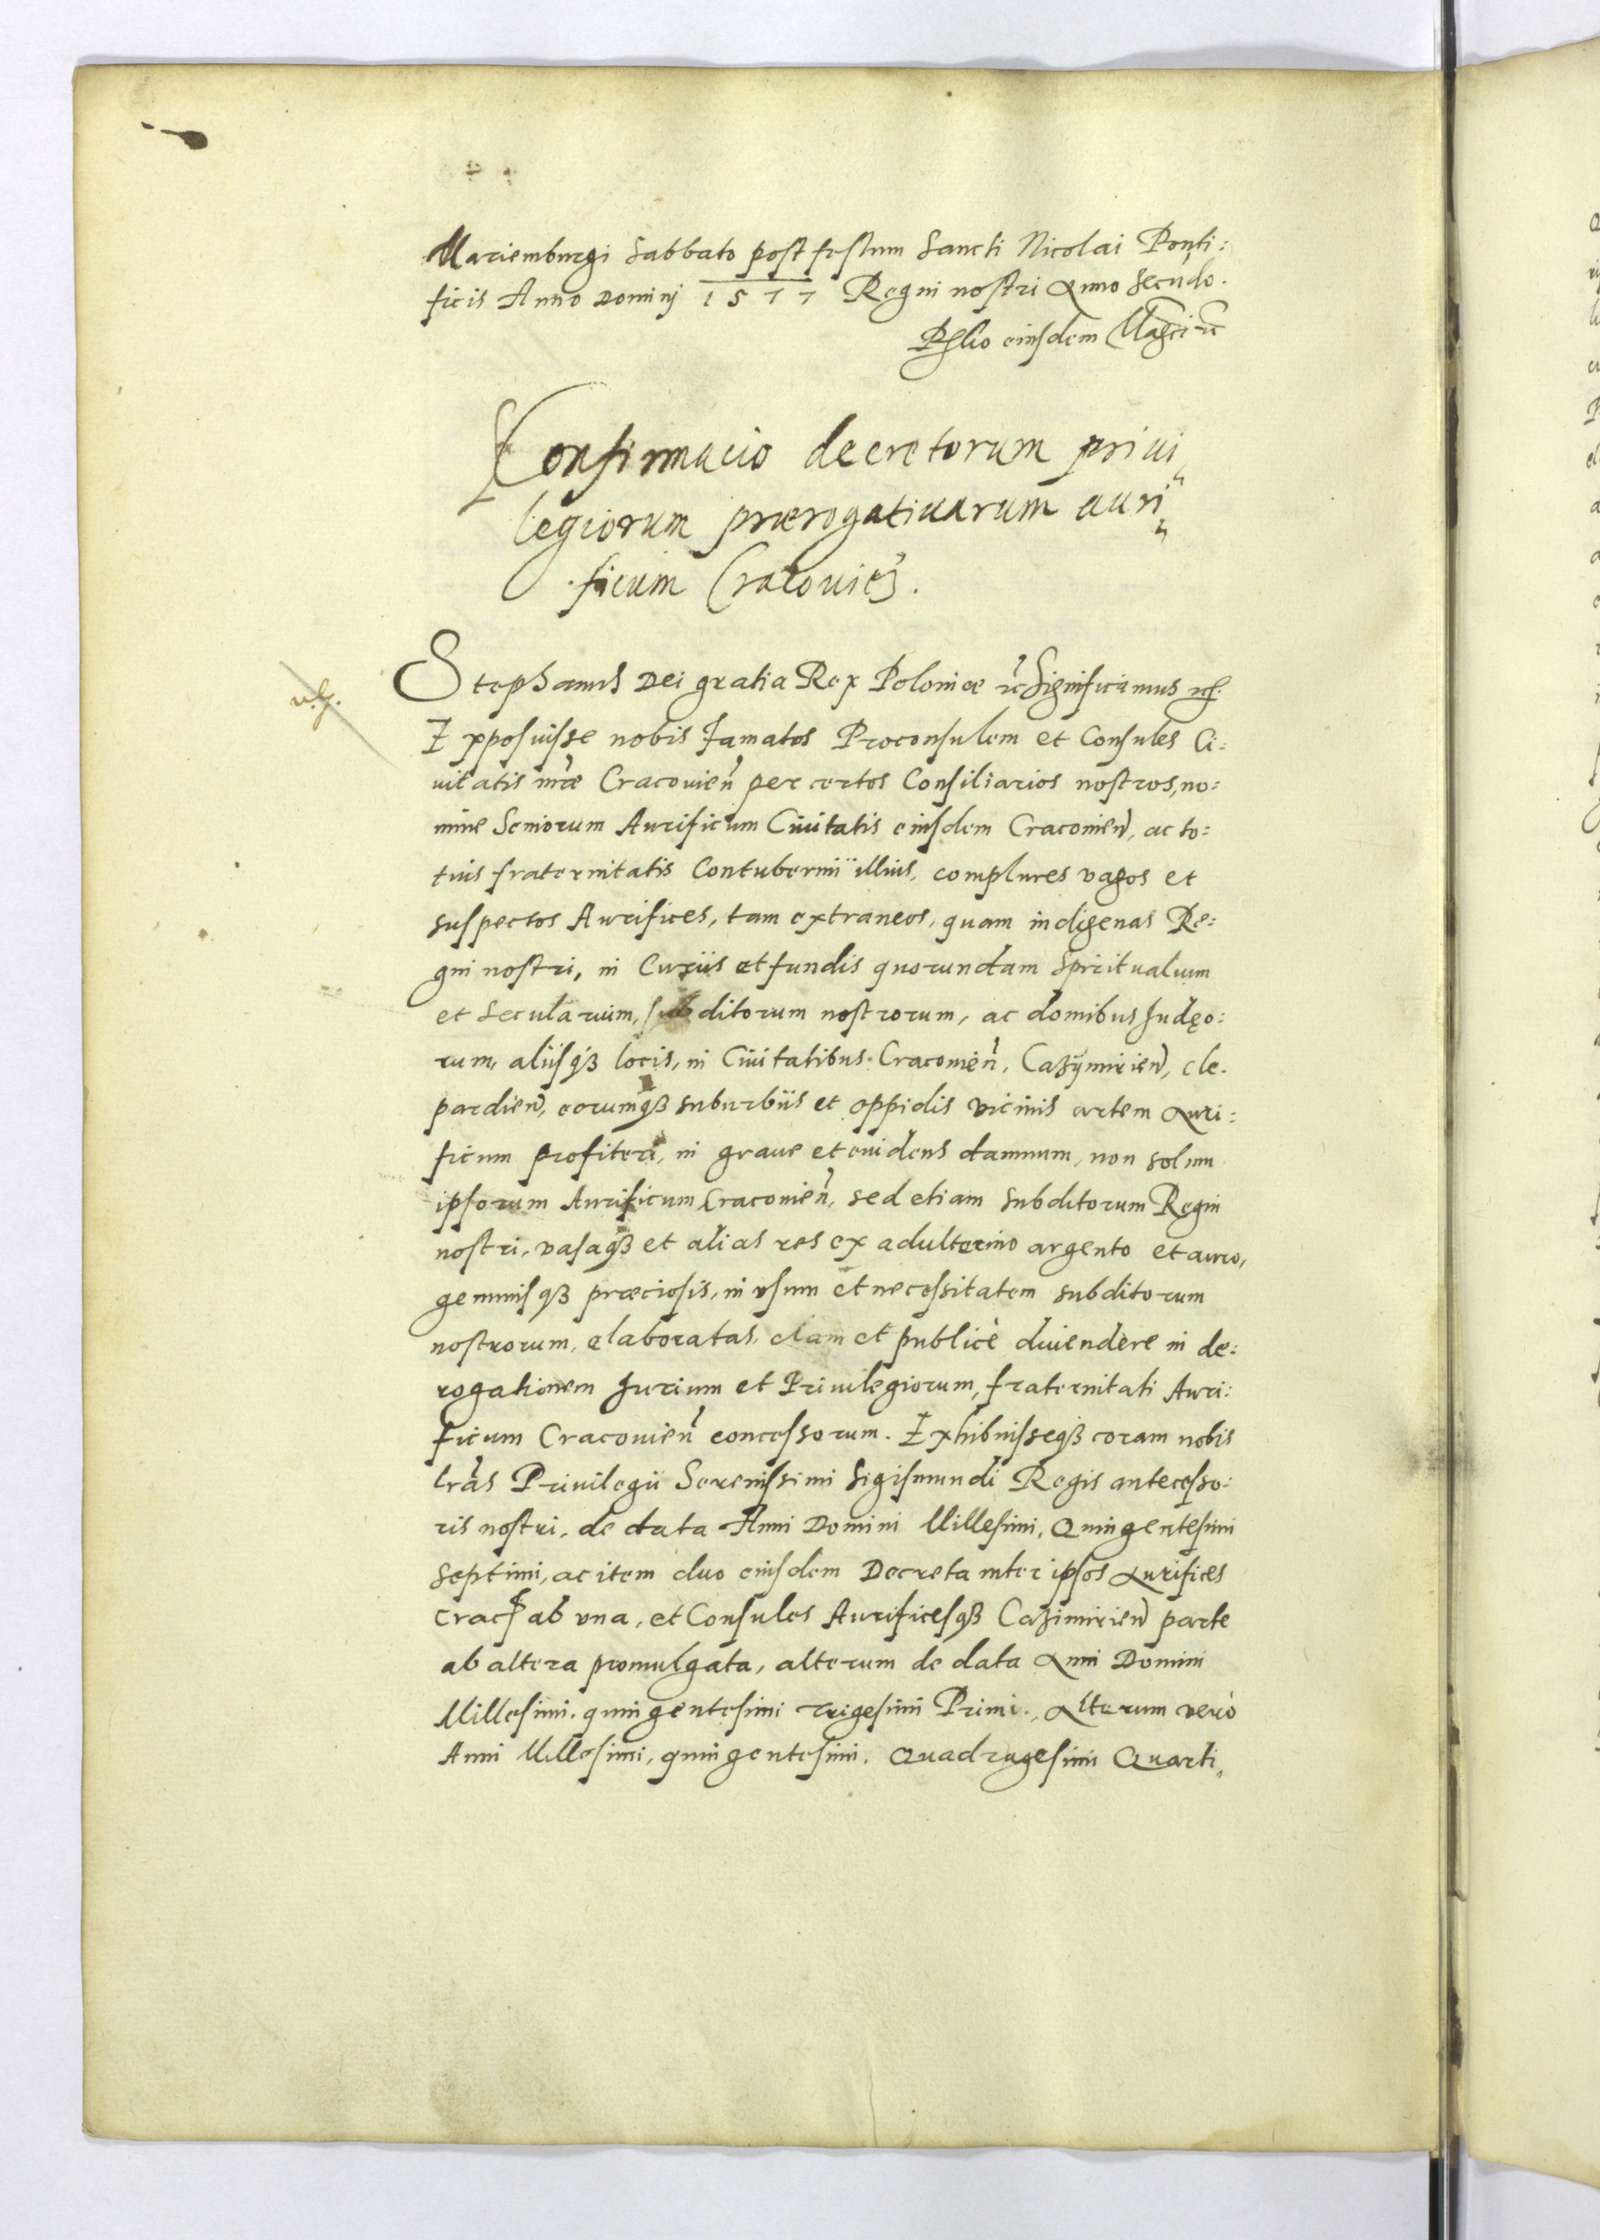 Mariemburgi Sabbato post festum Sancti Nicolai Ponti:
ficis Anno Dominj 1577 Regni nostri Anno Secūdo.
eiusdem
Confirmacio decretorum priui„
legiorum prærogatiuarum auri„
ficum Cracouień.
Stephanus Dei gratia Rex Poloniæ ec̃ Significamus
Exposuisse nobis famatos Proconsulem et Consules Ci:
uitatis nr̃æ Cracouień per certos Consiliarios nostros, no:
mine Seniorum Aurificum Ciuitatis eiusdem Cracouień, ac to:
tius fraternitatis Contubernii illius, complures vagos et
suspectos Aurifices, tam extraneos, quam indigenas Re:
gni nostri, in Curiis et fundis quorundam Spiritualium
et Secularium, subditorum nostrorum, ac domibus Judęo:
rum, aliisqꝫ locis, in Ciuitatibus Cracouień, Cazÿmirień, Cle.
pardień, eorumqꝫ suburbiis et oppidis vicinis artem Auri:
ficum profiteri, in graue et euidens damnum, non solum
ipsorum Aurificum Cracouień, sed etiam Subditorum Regni
nostri, vasaqꝫ et alias res ex adulterino argento et auro,
gemmisqꝫ præciosis, in vsum et necessitatem subditorum
nostrorum, elaboratas, clam et publicè diuendere in de:
rogationem Jurium et Priuilegiorum, fraternitati Auri:
ficum Cracouień concessorum. Exhibuisseqꝫ coram nobis
lrãs Priuilegii Serenissimi Sigismundi Regis antecesso:
ris nostri, de data Anni Domini Millesimi, Quingentesimi
Septimi, ac item duo eiusdem Decreta inter ipsos Aurifices
Crac̃ ab vna, et Consules Aurificesqꝫ Cazimirień parte
ab altera promulgata, alterum de data Anni Domini
Millesimi. quingentesimi trigesimi Primi., Alterum verò
Anni Millesimi, quingentesimi. Quadragesimi Quarti,